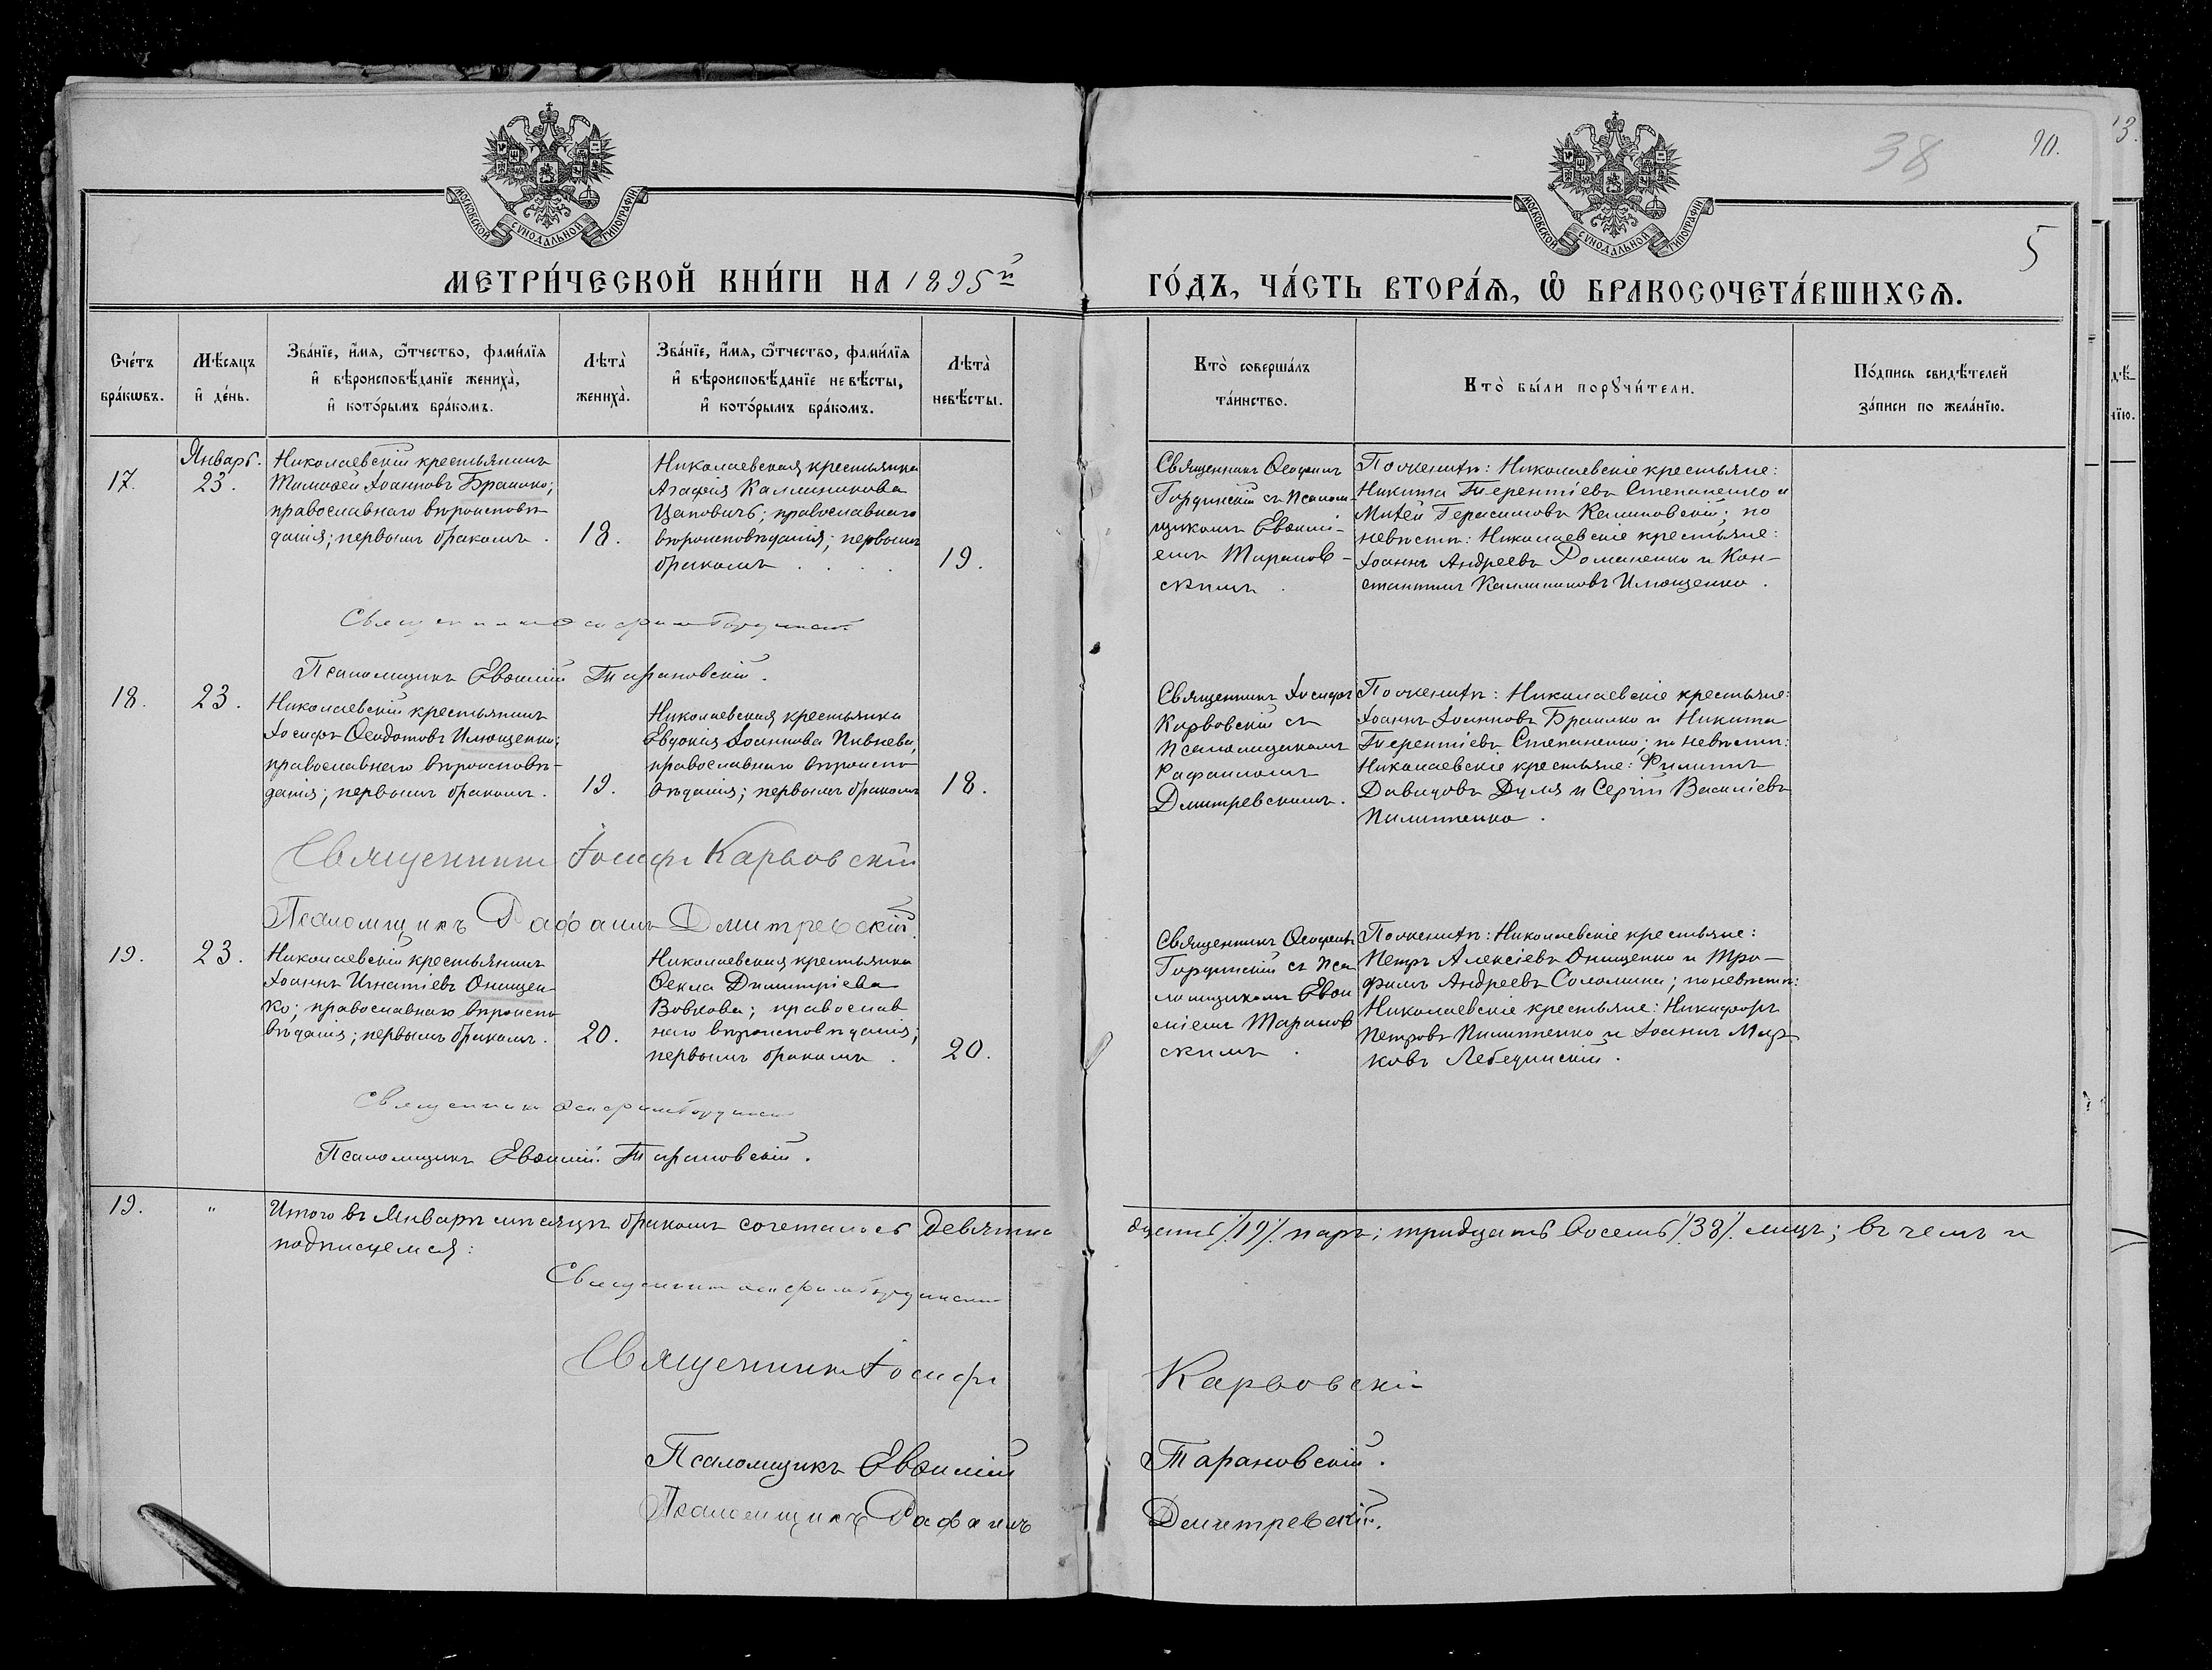 38
90.
13.
5
МОСКОВСКОЙ СѴНОДАЛЬНОЙ ТИПОГРАФІИ
МОСКОВСКОЙ СѴНОДАЛЬНОЙ ТИПОГРАФІИ
МЕТРИ́ЧЕСКОЙ КНИ́ГИ НА 1895й
ГО́ДЪ, ЧА́СТЬ ВТОРА́Ѧ, Ѽ БРАКОСОЧЕТА́ВШИХСѦ.
Сче́тъ
бра́кѡвъ.
Мѣ́сяцъ
и҆ де́нь.
Зва́нїе, и҆́мѧ, ѻ҆́тчество, фами́лїѧ
и҆ вѣроисповѣ́данїе жениха̀,
и҆ кото́рымъ бра́комъ.
Лѣта̀
жениха̀.
Зва́нїе, и҆́мѧ, ѻ҆́тчество, фами́лїѧ
и҆ вѣроисповѣ́данїе невѣ́сты,
и҆ кото́рымъ бра́комъ.
Лѣта̀
невѣ́сты.
Кто̀ соверша́лъ
та́инство.
Кто̀ бы́ли порꙋчи́тели.
По́дпись свидѣ́телей
за́писи по жела́нїю.
17.
Январь.
23.
Николаевскій крестьянинъ
Тимоѳей Іоанновъ Браилко;
православнаго вѣроисповѣ
данія; первымъ бракомъ.
18.
Николаевская крестьянка
Агафія Каллиникова
Цаповичъ; православнаго
вѣроисповѣданія; первымъ
бракомъ
19.
Священникъ Ѳеофилъ
Гординскій съ Псалом-
щикомъ Евѳимі-
емъ Таранов-
скимъ.
По женихѣ: Николаевскіе крестьяне:
Никита Терентіевъ Степаненко и
Михей Герасимовъ Калиновскій; по
невѣстѣ: Николаевскіе крестьяне:
Іоаннъ Андреевъ Романенко и Кон-
стантинъ Каллиниковъ Илющенко.
Священникъ Ѳеофилъ Гординскій
Псаломщикъ Евѳимій Тарановскій.
18.
23.
Николаевскій крестьянинъ
Іосифъ Ѳеодотовъ Илющенко;
православнаго вѣроисповѣ-
данія; первымъ бракомъ.
19.
Николаевская крестьянка
Евдокія Іоаннова Пивнева,
православнаго вѣроиспо
вѣданія; первымъ бракомъ
18.
Священникъ Іосифъ
Карвовскій съ
Псаломщикомъ
Рафаиломъ
Дмитревскимъ.
По женихѣ: Николаевскіе крестьяне:
Іоаннъ Іоанновъ Браилко и Никита
Терентіевъ Степаненко; по невѣстѣ:
Николаевскіе крестьяне: Филиппъ
Давидовъ Дуля и Сергій Василіевъ
Пилипенко.
Священникъ Іосифъ Карвовскій
Псаломщикъ Рафаилъ Дмитревскій.
19.
23.
Николаевскій крестьянинъ
Іоаннъ Игнатіевъ Онищен
ко; православнаго вѣроиспо
вѣданія; первымъ бракомъ.
20.
Николаевская крестьянка
Ѳекла Димитріева
Вовкова; православ
наго вѣроисповѣданія;
первымъ бракомъ.
20.
Священникъ Ѳеофилъ
Гординскій съ Пса
ломщикомъ Евѳи
міемъ Таранов
скимъ.
По женихѣ: Николаевскіе крестьяне:
Петръ Алексіевъ Онищенко и Тро-
фимъ Андреевъ Соломина; по невѣстѣ:
Николаевскіе крестьяне: Никифоръ
Петровъ Пилипенко и Іоаннъ Мар
ковъ Лебединскій.
Священникъ Ѳеофилъ Гордински
Псаломщикъ Евѳимій Тарановскій.
19.
"
Итого въ Январѣ мѣсяцѣ бракомъ сочеталось девятна
дцать /19/ паръ; тридцать восемь /38/ лицъ; въ чемъ и
подписуемся:
Священникъ Ѳеофилъ Гординский
Священникъ Іосифъ Карвовскій
Псаломщикъ Евѳимій Тарановскій.
Псаломщикъ Рафаилъ Дмитревскій.